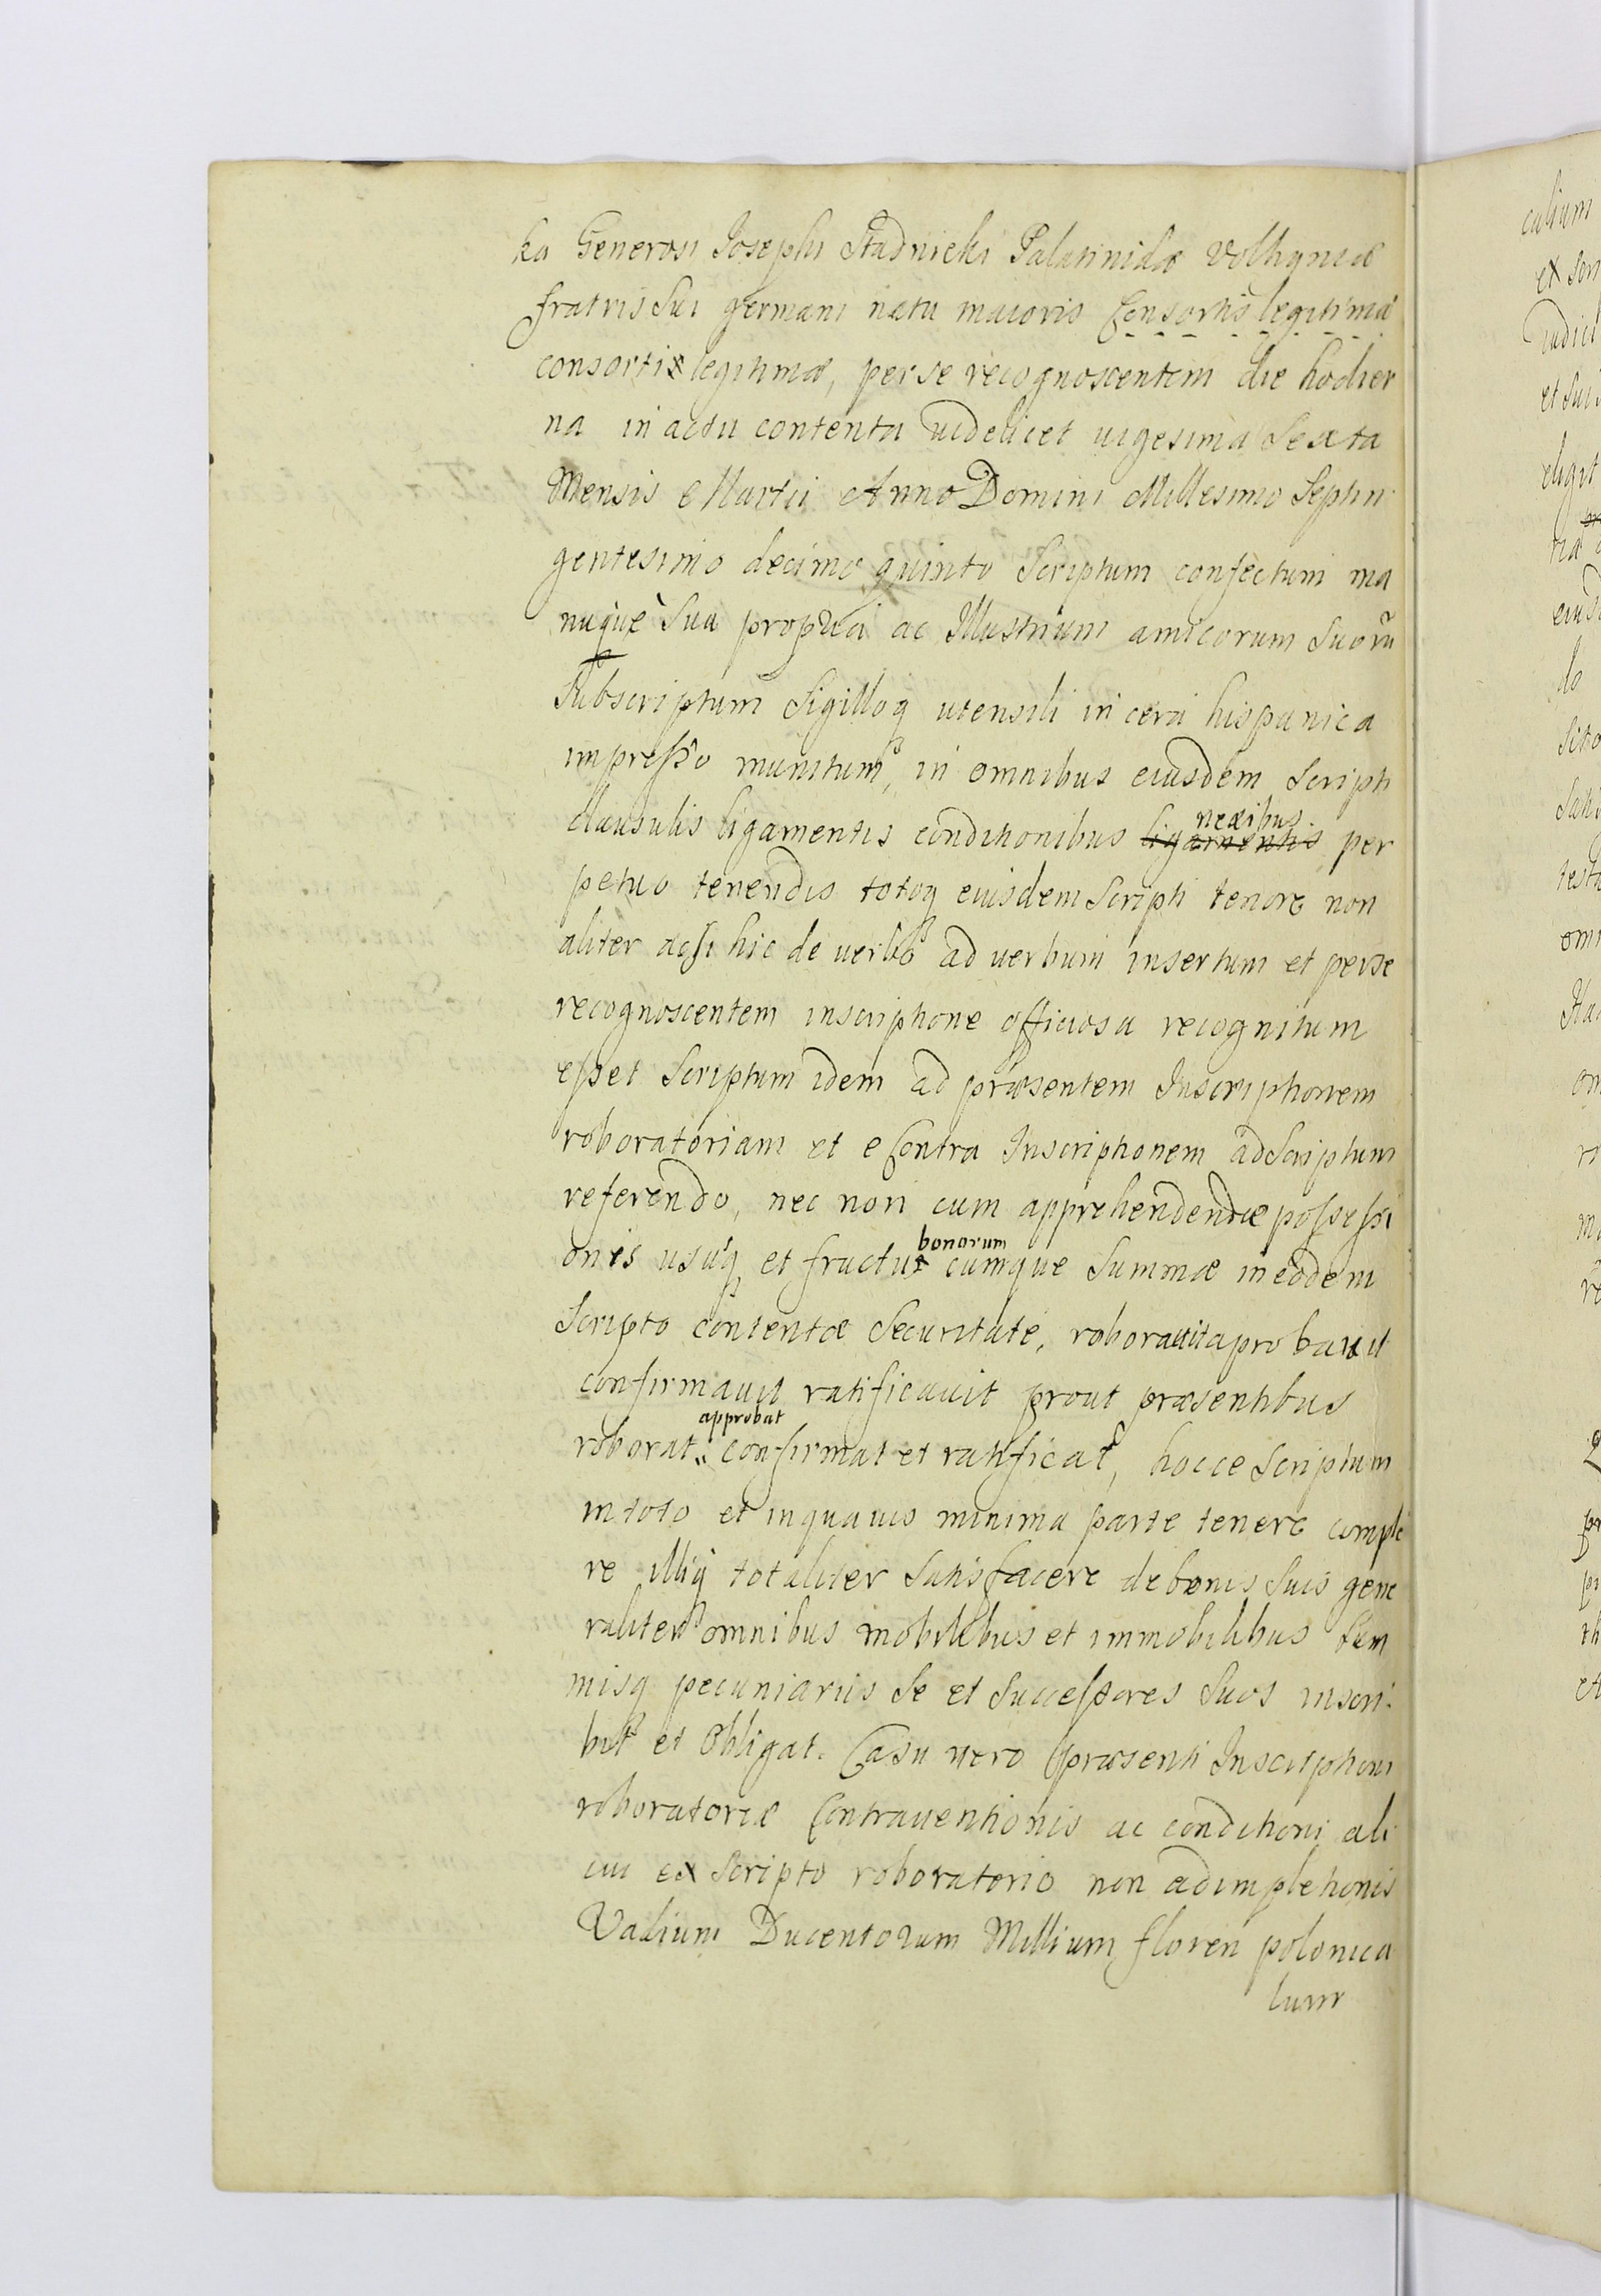 ka Generosi Josephi Stadnicki Palatinidæ Volhyniæ
fratris Sui germani natu maioris Consortis legitimæ
consortis legitimæ, per se recognoscentem die hodier
na in actu contenta videlicet uigesima Sexta
Mensis Martii Anno Domini Millesimo Septin
gentesimo decimo quinto Scriptum confectum ma
nuquè Sua propria ac Illustrium amicorum Suorũ
Subscriptum Sigilloq utensili in cera hispanica
impresso munitum, in omnibus eiusdem Scripti
clausulis ligamentis conditionibus ligamentis nexibus per
petuo tenendis totoq eiusdem Scripti tenore non
aliter acsi hic de uerbo ad uerbum insertum et per se
recognoscentem inscriptione officiosa recognitum
esset Scriptum idem ad præsentem Inscriptionem
roboratoriam et e Contra Inscriptionem ad Scriptum
referendo, nec non cum apprehendendæ possessi
onis usuq et fructus bonorum cumque Summæ in eodem
Scripto contentæ Securitate, roborauit aprobauit
confirmauit ratificauit prout præsentibus
roborat approbat confirmat et ratificat, hocce Scriptum
in toto et in quauis minima parte tenere comple
re illiq totaliter Satisfacere de bonis Suis gene
raliter omnibus mobilibus et immobilibus Sum
misq pecuniariis Se et Successores Suos inscri
bit et Obligat. Casu uero præsenti Inscriptioni
roboratoriæ Contrauentionis ac conditioni ali
cui ex Scripto roboratorio non adimpletionis
Vadium Ducentorum Millium floren polonica
lium